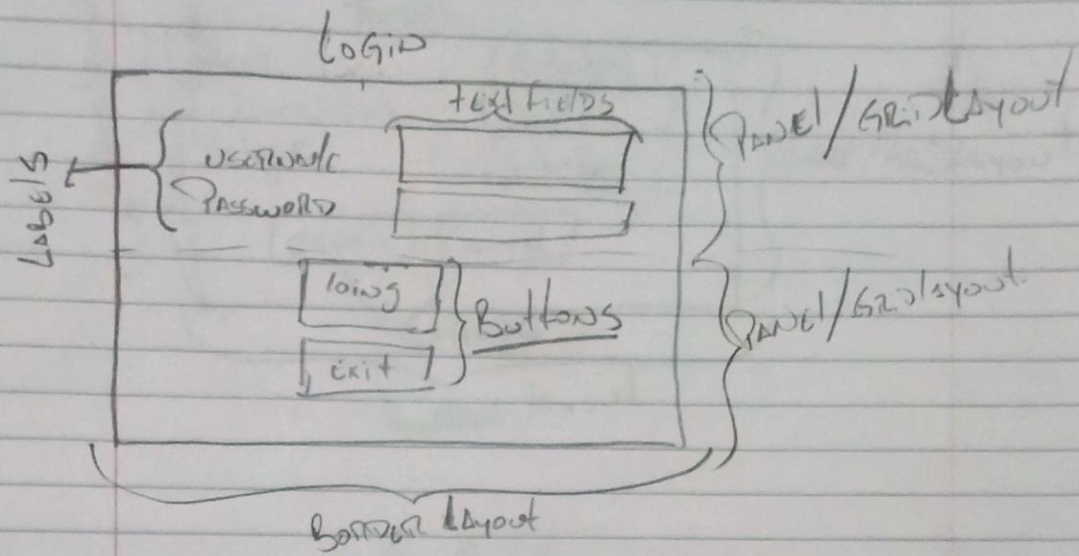 Login
text fields
Panel/GridLayout
Labels
Username
Password
loing
Buttons
exit
Panel/Gridlayout
Border Layout